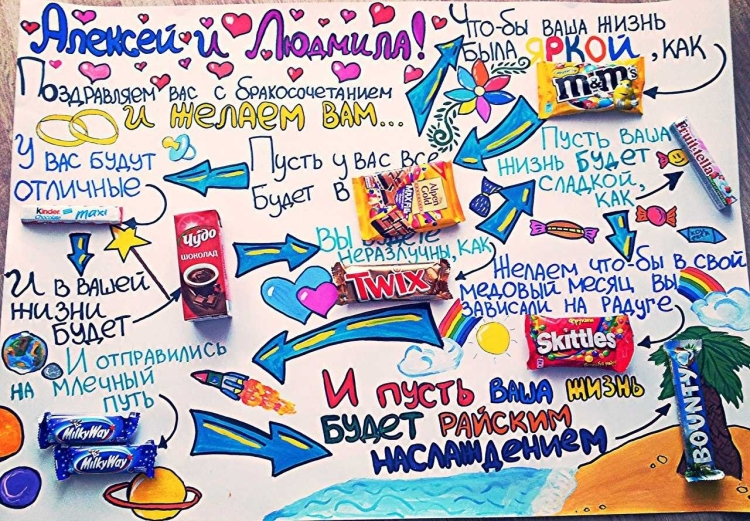 Алексей и Людмила!
Поздравляем вас с бракосочетанием
и желаем вам...
Что-бы ваша жизнь
была яркой, как
m&m's
Пусть ваша
жизнь будет
сладкой,
как
Fruittella
Пусть у вас всё
будет в
Alpen Gold
У вас будут
отличные
Kinder
Chocolate
maxi
И в вашей
жизни
будет
Чудо
шоколад
Вы будете
неразлучны, как
TWIX
Желаем что-бы в свой
медовый месяц вы
зависали на радуге
Skittles
И отправились
на млечный
путь
MilkyWay
MilkyWay
И пусть ваша жизнь
будет райским
наслаждением
BOUNTY